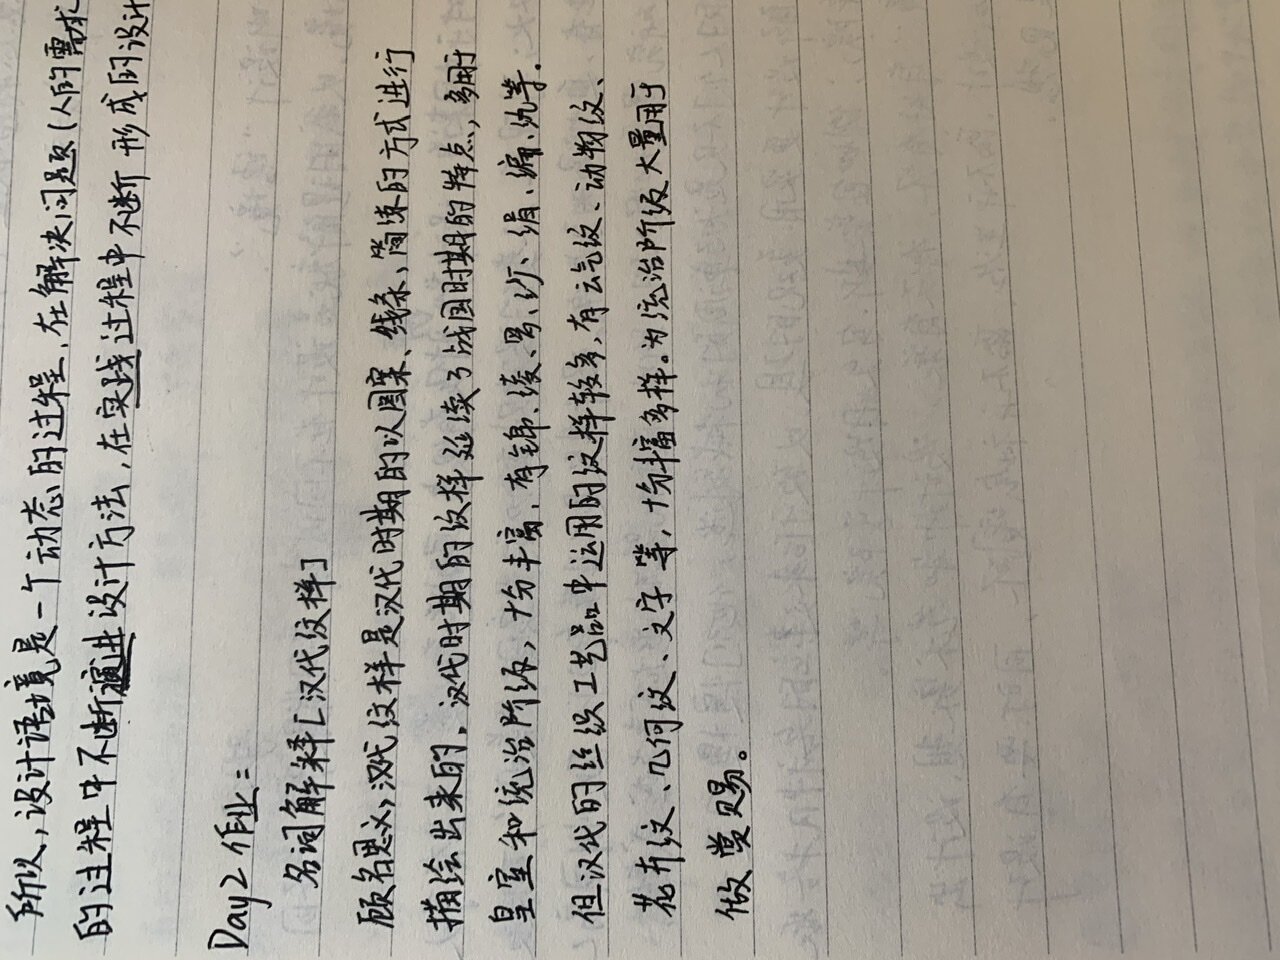 所以,设计语境是一个动态的过程,在解决问题(人的需求
的过程中不断演进设计方法,在实践过程中不断形成的设计
Day2作业:
名词解释[汉代纹样]
顾名思义,汉代纹样是汉代时期的以图案、线条、简练的方式进行
描绘出来的,汉代时期的纹样延续了战国时期的特点,多用于
皇室和统治阶级,十分丰富,有锦、绫、罗、纱、绢、缟、纨等.
但汉代的丝织工艺品中运用的纹样较多,有云气纹、动物纹、
花卉纹、几何纹、文字等,十分丰富多样。为统治阶级大量用于
做赏赐。